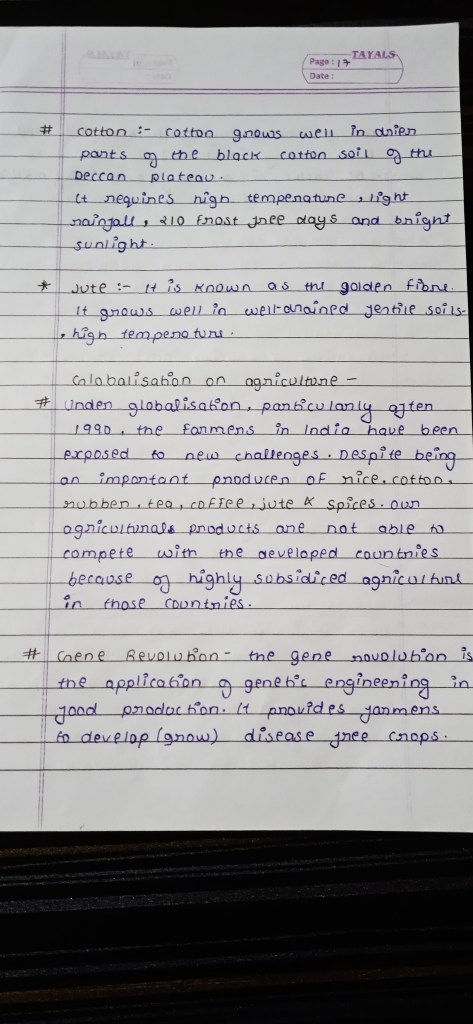 TAYALS
Page : 17
Date :
# Cotton :- Cotton grows well in drier
parts of the black cotton soil of the
Deccan plateau.
It requires high temperature, light
rainfall, 210 frost free days and bright
sunlight.
* Jute :- It is known as the golden fibre.
It grows well in well-drained fertile soils.
, high temperature.
Globalisation on agriculture -
# Under globalisation, particularly after
1990, the farmers in India have been
exposed to new challenges. Despite being
an important producer of rice, cotton,
rubber, tea, coffee, jute & spices. our
agriculturals products are not able to
compete with the developed countries
because of highly subsidiced agriculture
in those countries.
# Gene Revolution - the gene rovolution is
the application of genetic engineering in
food production. It provides farmers
to develop (grow) disease free crops.